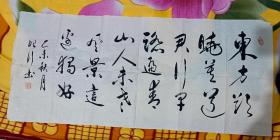 東方欲
曉莫道
君行早
踏遍青
山人未老
风景這
邊獨好
乙未秋月
书